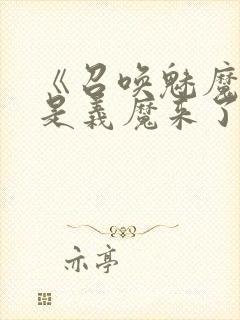 《召唤魅魔
是义魔来了
亦亭